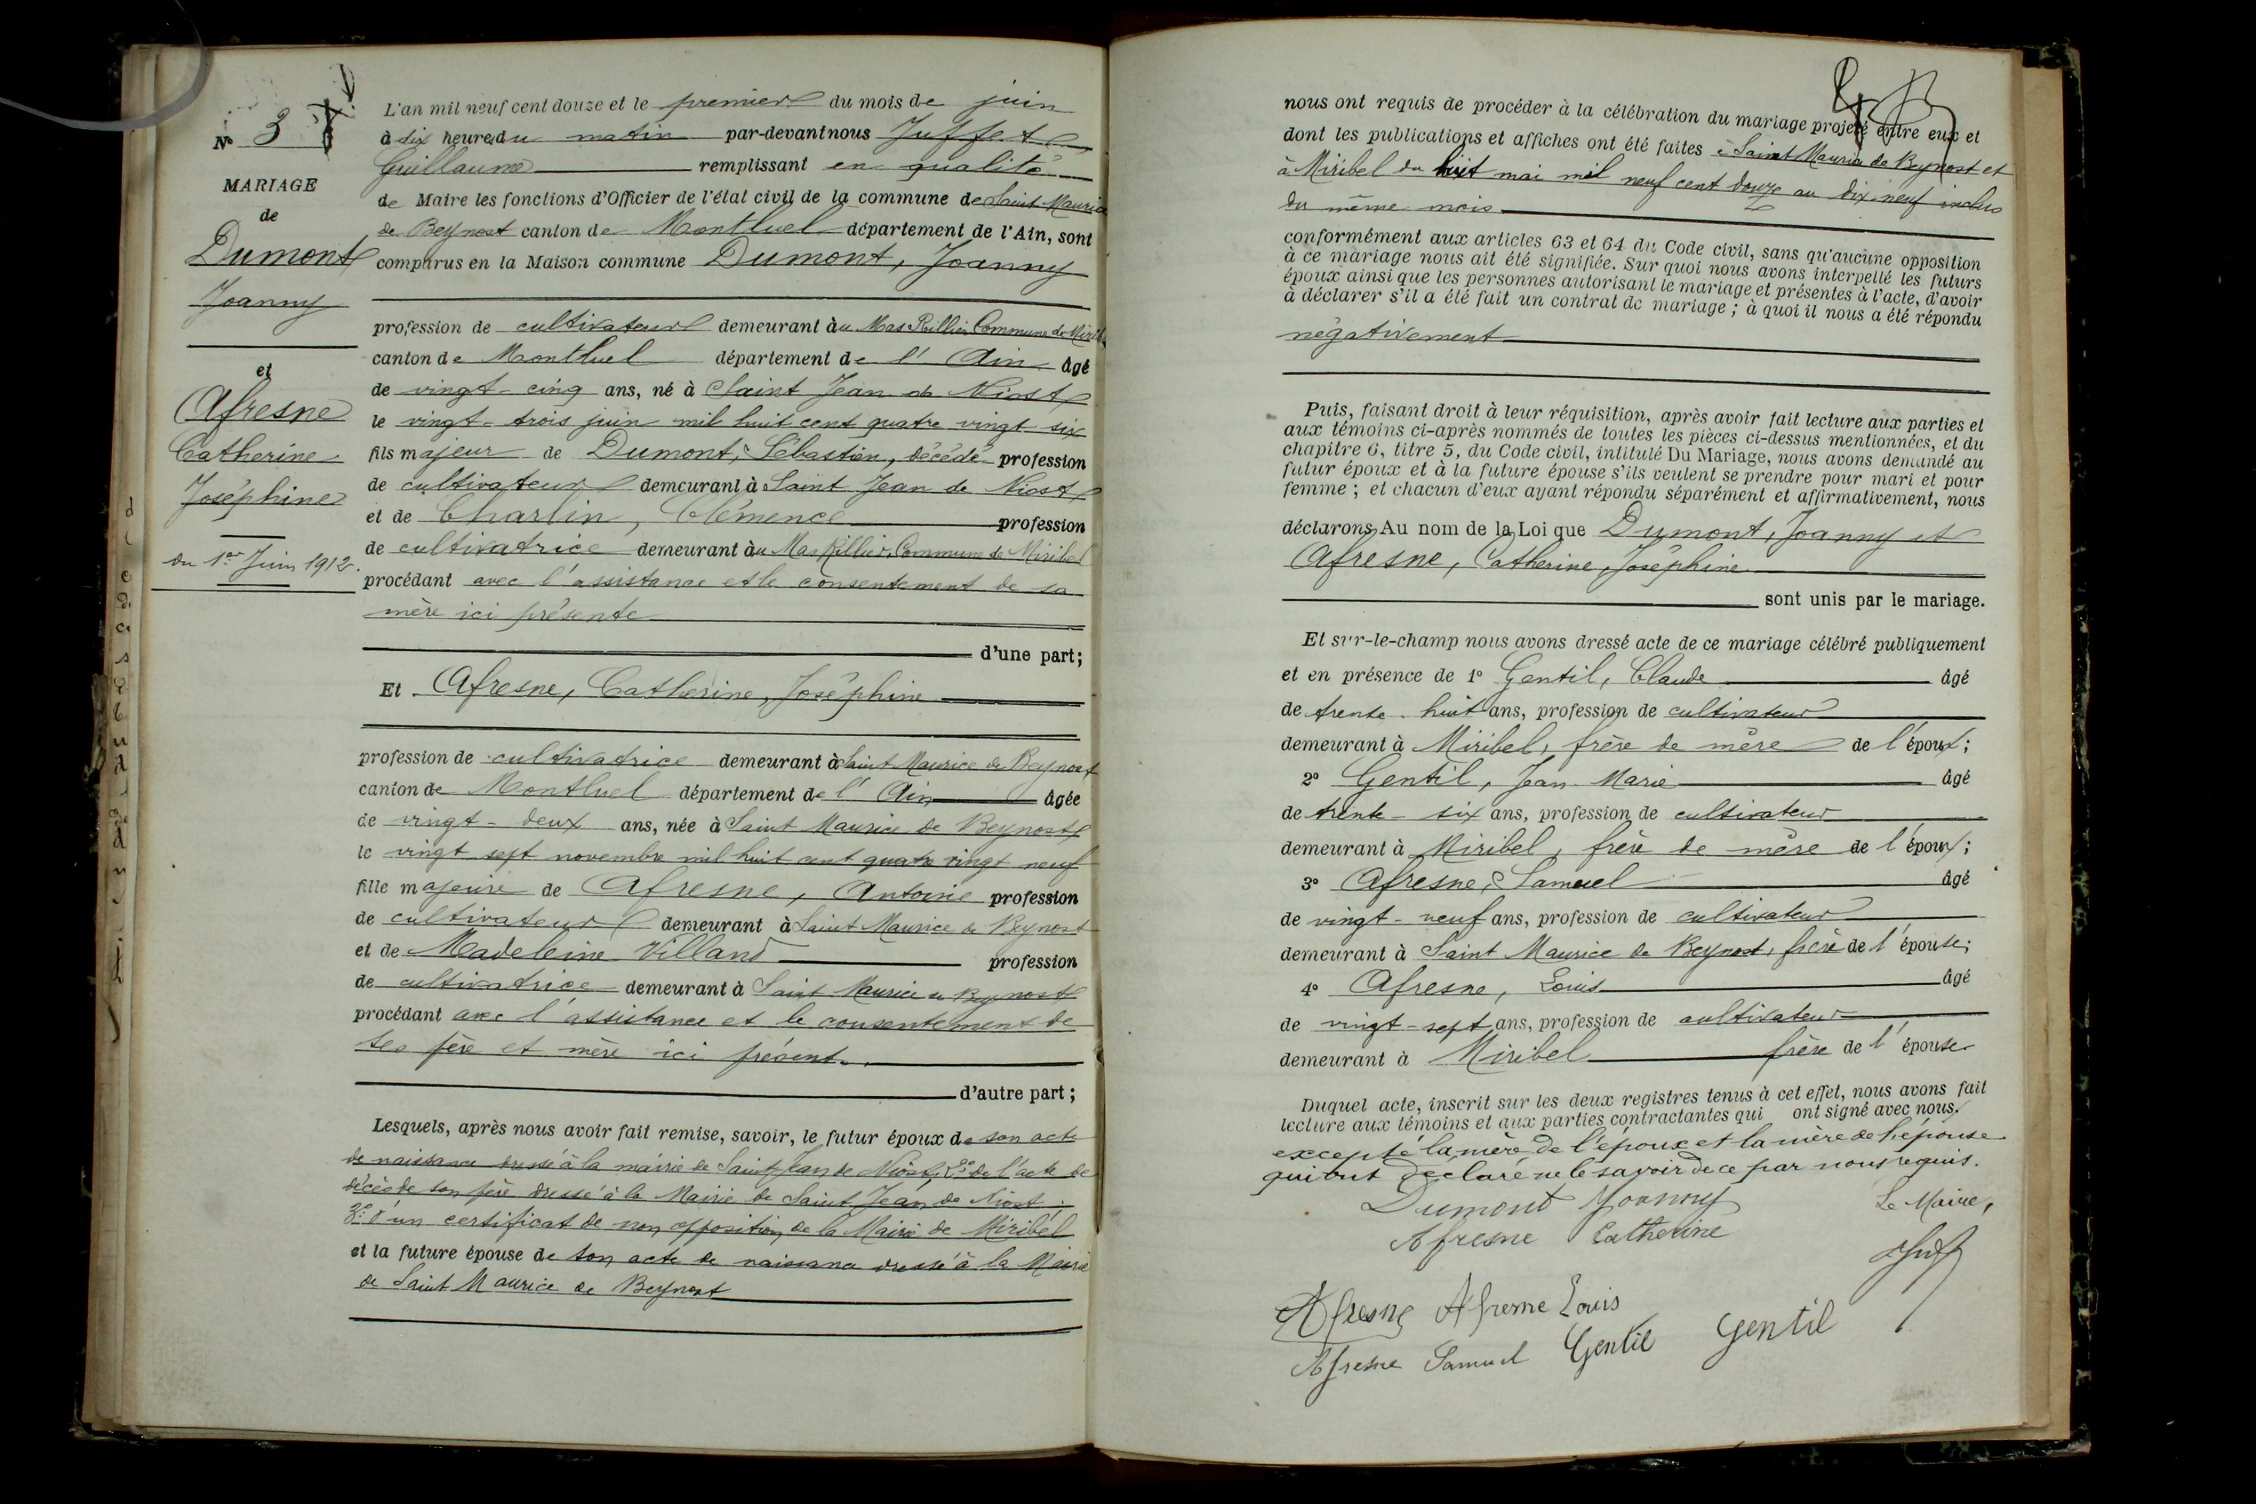 N° 3
MARIAGE
de
Dumont
Joanny
et
Afresne
Catherine
Joséphine
du 1er Juin 1912.
L'an mil neuf cent douze et le premier du mois de juin
à dix heures du matin par-devant nous Juffet
Guillaume remplissant en qualité
de Maire les fonctions d'Officier de l'état civil de la commune de Saint Maurice
de Beynost canton de Montluel département de l'Ain, sont
comparus en la Maison commune Dumont, Joanny
profession de cultivateur demeurant au Mas Rillier Commune de Miribel
canton de Montluel département de l'Ain âgé
de vingt-cinq ans, né à Saint Jean de Niost
le vingt-trois juin mil huit cent quatre vingt six
fils majeur de Dumont, Sébastien, décédé profession
de cultivateur demeurant à Saint Jean de Niost
et de Charlin, Clémence profession
de cultivatrice demeurant au Mas Rillier, Commune de Miribel
procédant avec l'assistance et le consentement de sa
mère ici présente
d'une part;
Et Afresne, Catherine, Joséphine
profession de cultivatrice demeurant à Saint Maurice de Beynost
canton de Montluel département de l'Ain âgée
de vingt-deux ans, née à Saint Maurice de Beynost
le vingt sept novembre mil huit cent quatre vingt neuf
fille majeure de Afresne, Antoine profession
de cultivateur demeurant à Saint Maurice de Beynost
et de Madeleine Villand profession
de cultivatrice demeurant à Saint Maurice de Beynost
procédant avec l'assistance et le consentement de
ses père et mère ici présents
d'autre part;
Lesquels, après nous avoir fait remise, savoir, le futur époux de son acte
de naissance dressé à la mairie de Saint Jean de Niost, 2° de l'acte de
décès de son père dressé à la Mairie de Saint Jean de Niost;
3° d'un certificat de non opposition de la Mairie de Miribel
et la future épouse de son acte de naissance dressé à la Mairie
de Saint Maurice de Beynost
nous ont requis de procéder à la célébration du mariage projeté entre eux et
dont les publications et affiches ont été faites à Saint Maurice de Beynost et
à Miribel du huit mai mil neuf cent douze au dix-neuf inclus
du même mois
conformément aux articles 63 et 64 du Code civil, sans qu'aucune opposition
à ce mariage nous ait été signifiée. Sur quoi nous avons interpellé les futurs
époux ainsi que les personnes autorisant le mariage et présentes à l'acte, d'avoir
à déclarer s'il a été fait un contrat de mariage; à quoi il nous a été répondu
négativement
Puis, faisant droit à leur réquisition, après avoir fait lecture aux parties et
aux témoins ci-après nommés de toutes les pièces ci-dessus mentionnées, et du
chapitre 6, titre 5, du Code civil, intitulé Du Mariage, nous avons demandé au
futur époux et à la future épouse s'ils veulent se prendre pour mari et pour
femme; et chacun d'eux ayant répondu séparément et affirmativement, nous
déclarons Au nom de la Loi que Dumont, Joanny et
Afresne, Catherine, Joséphine
sont unis par le mariage.
Et sur-le-champ nous avons dressé acte de ce mariage célébré publiquement
et en présence de 1° Gentil, Claude âgé
de trente-huit ans, profession de cultivateur
demeurant à Miribel, frère de mère de l'époux;
2° Gentil, Jean Marie âgé
de trente-six ans, profession de cultivateur
demeurant à Miribel, frère de mère de l'époux;
3° Afresne, Samuel âgé
de vingt-neuf ans, profession de cultivateur
demeurant à Saint Maurice de Beynost, frère de l'épouse;
4° Afresne, Louis âgé
de vingt-sept ans, profession de cultivateur
demeurant à Miribel frère de l'épouse
Duquel acte, inscrit sur les deux registres tenus à cet effet, nous avons fait
lecture aux témoins et aux parties contractantes qui ont signé avec nous.
excepté la mère de l'époux et la mère de l'épouse
qui ont déclaré ne le savoir de ce par nous requis.
Dumont Joanny Le Maire,
Afresne Catherine
Afresne Afresne Louis
Afresne Samuel Gentil Gentil